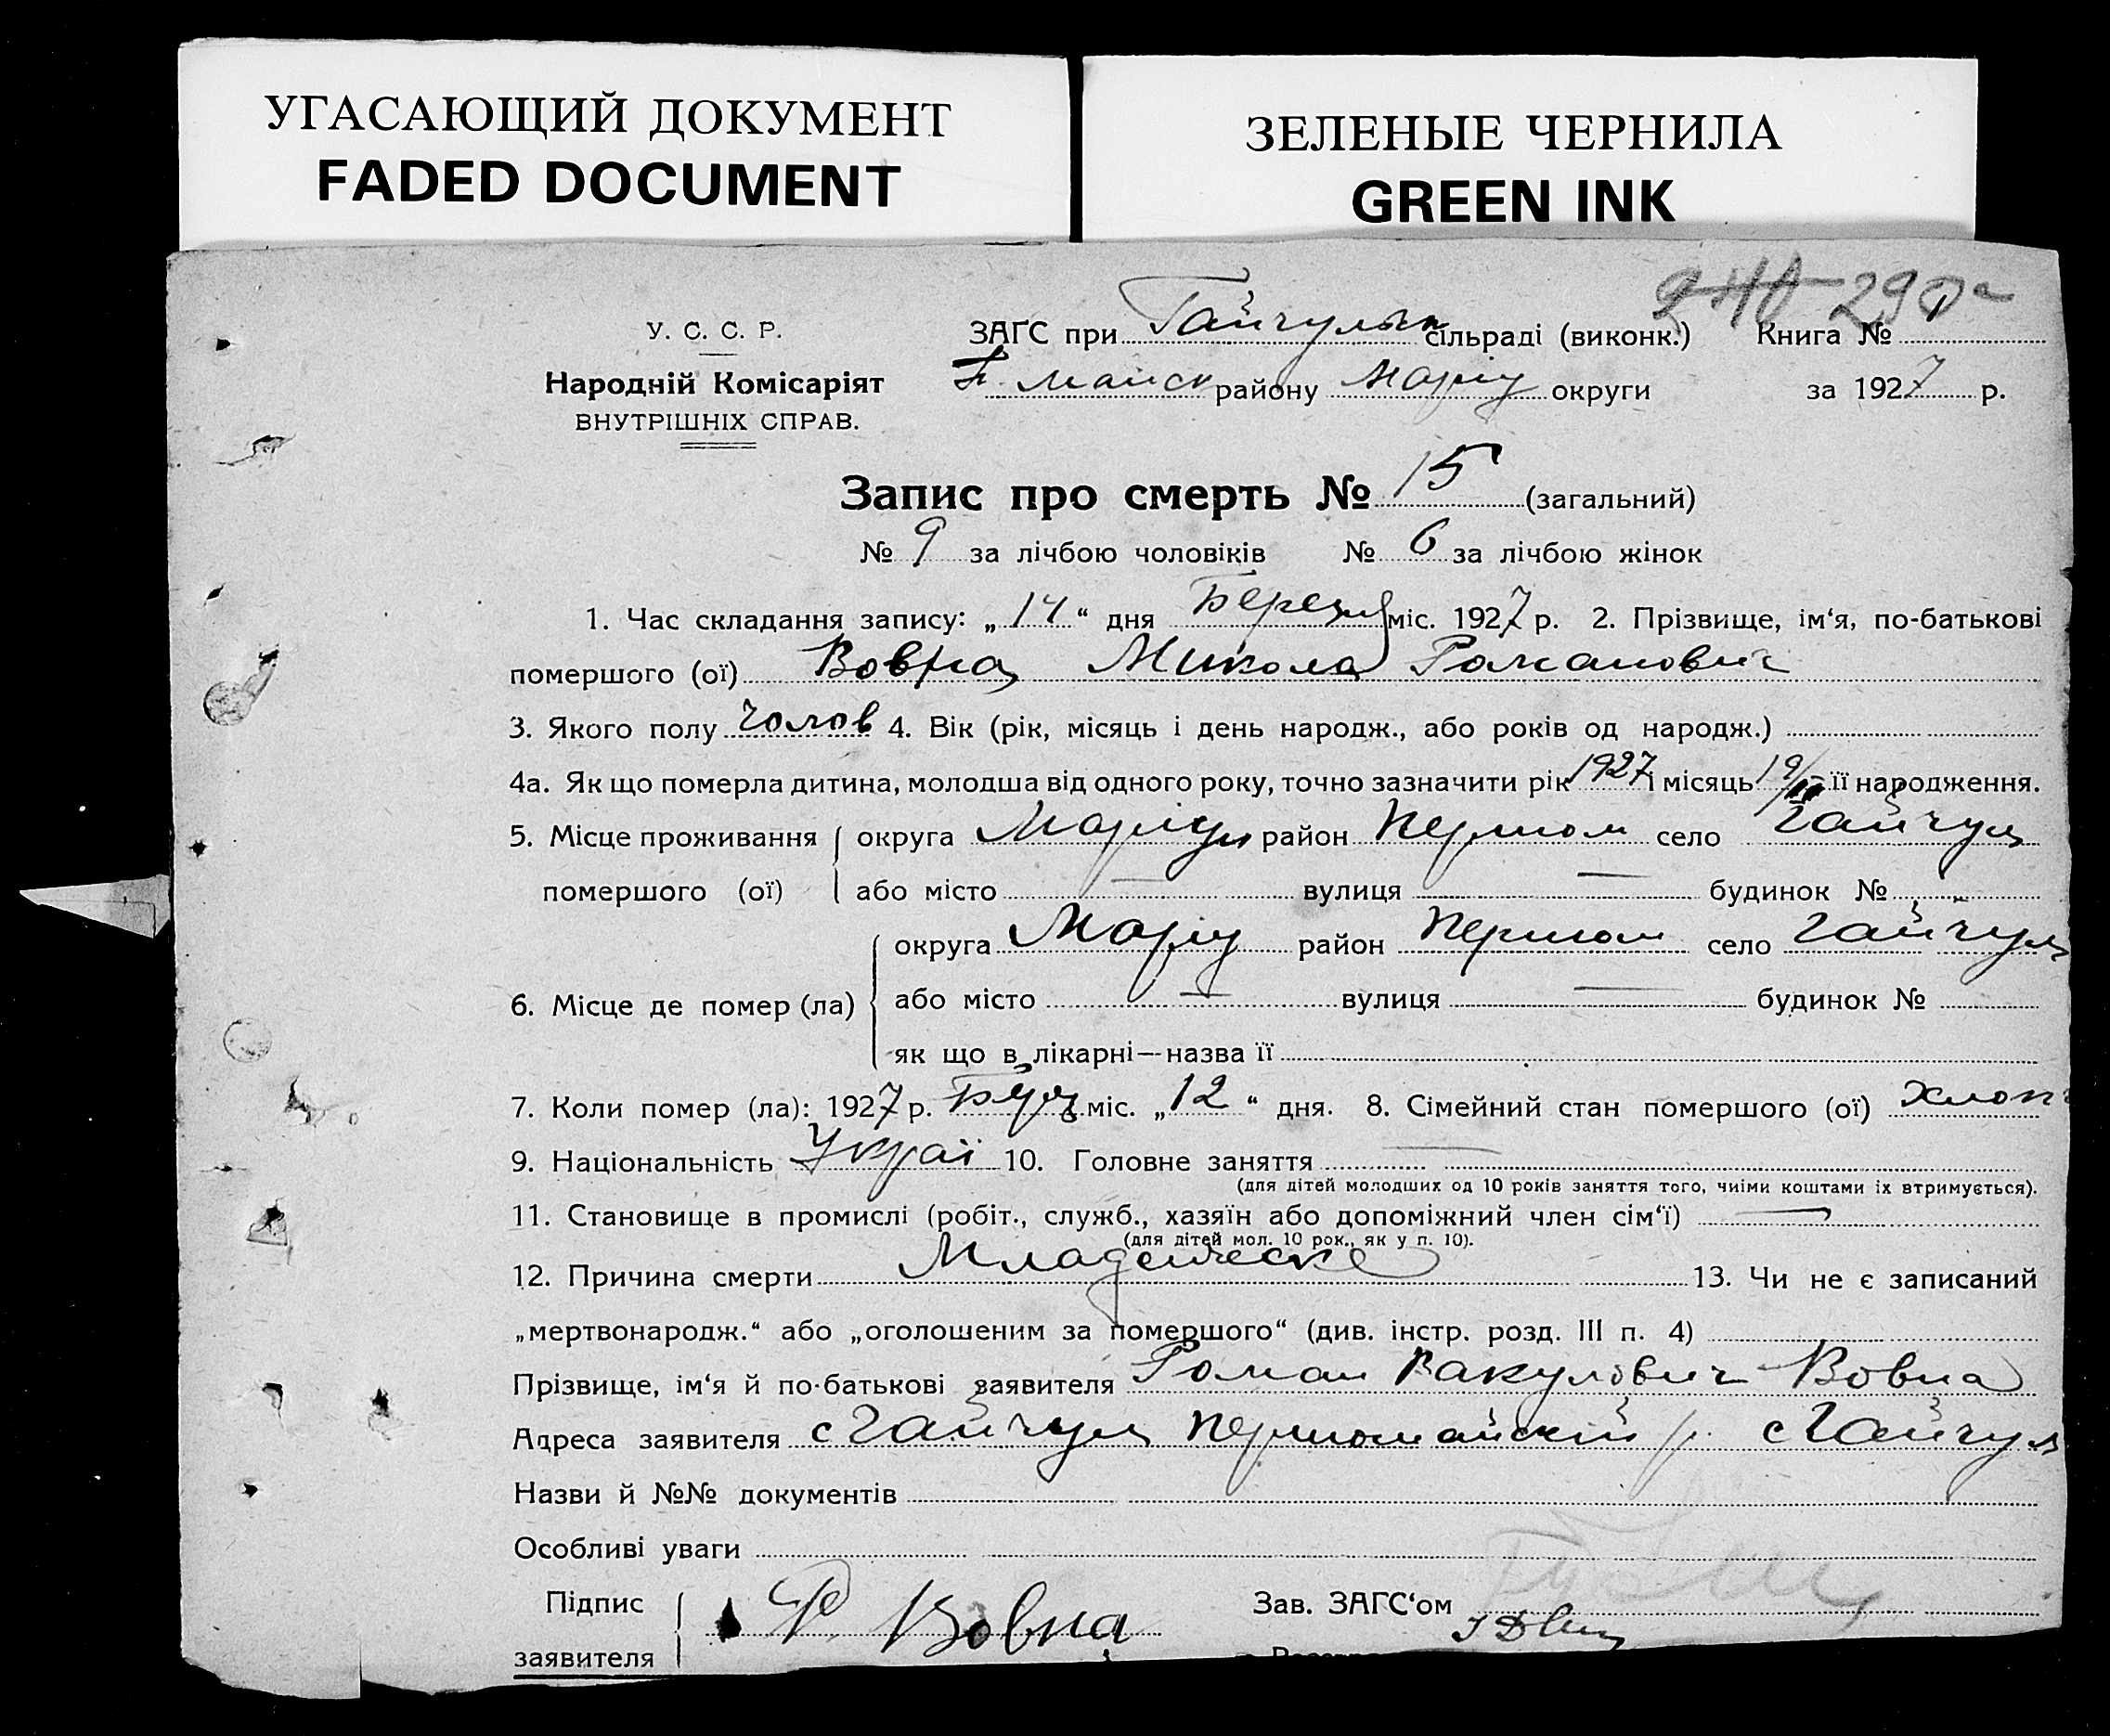 УГАСАЮЩИЙ ДОКУМЕНТ
FADED DOCUMENT
ЗЕЛЕНЫЕ ЧЕРНИЛА
GREEN INK
290
У. С. С. Р.
Народній Комісаріят
ВНУТРІШНІХ СПРАВ.
ЗАГС при Гайчульск сільраді (виконк.) Книга №
П. майск району Маріу округи за 1927 р.
Запис про смерть № 15 (загальний)
№ 9 за лічбою чоловіків № 6 за лічбою жінок
1. Час складання запису: „ 14 “ дня Березня міс. 1927 р. 2. Прізвище, ім‘я, по-батькові
помершого (ої) Вовна Микола Романович
3. Якого полу чолов 4. Вік (рік, місяць і день народж., або років од народж.)
4а. Як що померла дитина, молодша від одного року, точно зазначити рік 1927 і місяць її народження.
5. Місце проживання округа Маріуп район Першом село Гайчул
помершого (ої) або місто — вулиця — будинок №
округа Маріу район Першом село Гайчул
6. Місце де помер (ла) або місто — вулиця — будинок №
як що в лікарні—назва її
7. Коли помер (ла): 1927 р. міс. „ 12 “ дня. 8. Сімейний стан помершого (ої) хлоп
9. Національність Украї 10. Головне заняття —
(для дітей молодших од 10 років заняття того, чиїми коштами їх втримується).
11. Становище в промислі (робіт., служб., хазяїн або допоміжний член сім‘ї) —
(для дітей мол. 10 рок., як у п. 10).
12. Причина смерти Младенческе 13. Чи не є записаний
„мертвонародж.“ або „оголошеним за помершого“ (див. інстр. розд. III п. 4)
Прізвище, ім‘я й по-батькові заявителя Роман Вакулович Вовна
Адреса заявителя с Гайчул Першомайскій р. с Гайчул
Назви й №№ документів
Особливі уваги
Підпис Р Вовна Зав. ЗАГС‘ом
заявителя